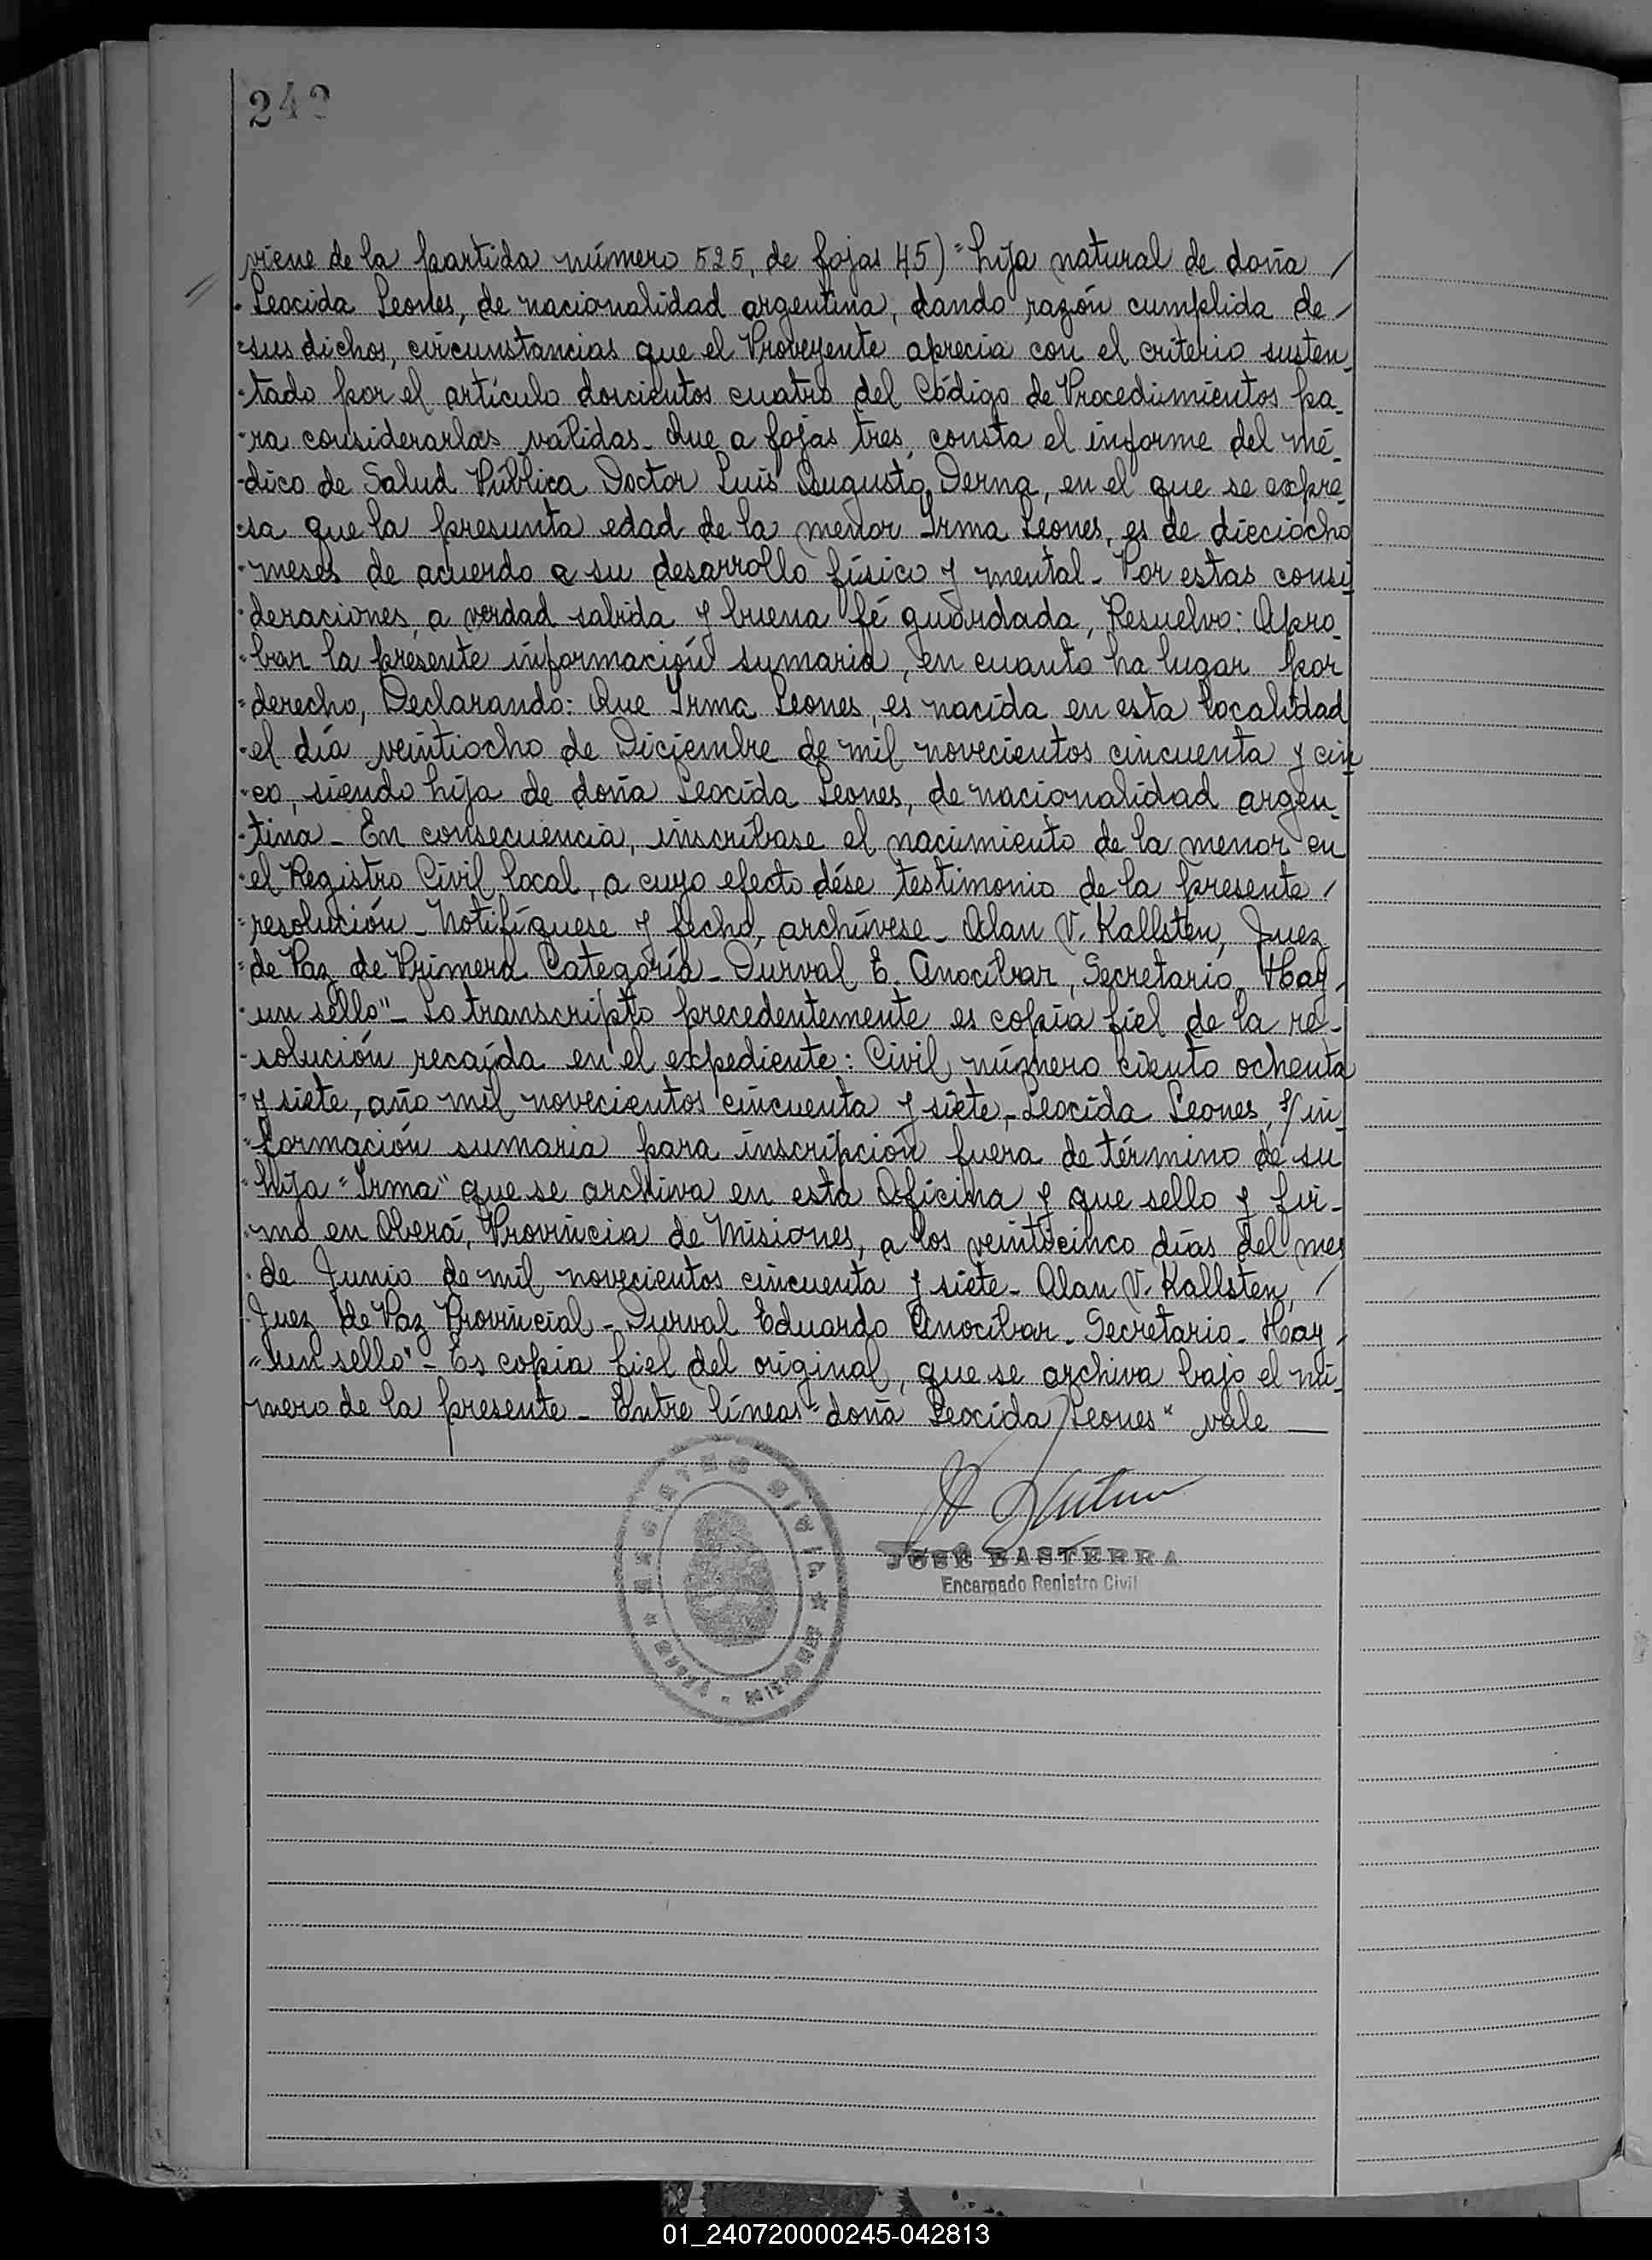 242
viene de la partida número 525, de fojas 45) "hija natural de doña /
" Leocida Leones, de nacionalidad argentina, dando razón cumplida de /
" sus dichos, circunstancias que el Proveyente aprecia con el criterio susten_
" tado por el artículo doscientos cuatro del Código de Procedimientos pa_
" ra considerarlas válidas_ Que a fojas tres, consta el informe del mé_
" dico de Salud Pública Doctor Luis Augusto Derna, en el que se expre_
" sa que la presunta edad de la menor Irma Leones, es de dieciocho
" meses de acuerdo a su desarrollo físico y mental_ Por estas consi_
" deraciones, a verdad sabida y buena fé guardada, Resuelvo: Apro_
" bar la presente información sumaria, en cuanto ha lugar por
" derecho, Declarando: Que Irma Leones, es nacida en esta localidad
" el día veintiocho de Diciembre de mil novecientos cincuenta y cin_
" co, siendo hija de doña Leocida Leones, de nacionalidad argen_
" tina_ En consecuencia, inscríbase el nacimiento de la menor en
" el Registro Civil local, a cuyo efecto dése testimonio de la presente /
" resolución_ Notifíquese y fecho, archívese_ Alan V. Kallsten, Juez
" de Paz de Primera Categoría_ Durval E. Anocíbar, Secretario_ Hay /
" un sello"_ Lo transcripto precedentemente es copia fiel de la re_
" solución recaída en el expediente: Civil número ciento ochenta
" y siete, año mil novecientos cincuenta y siete_ Leocida Leones, s/ in_
" formación sumaria para inscripción fuera de término de su
" hija "Irma" que se archiva en esta Oficina y que sello y fir_
" mo en Oberá, Provincia de Misiones, a los veinticinco días del mes
" de Junio de mil novecientos cincuenta y siete_ Alan V. Kallsten, /
" Juez de Paz Provincial_ Durval Eduardo Anocíbar_ Secretario_ Hay /
" un sello"_ Es copia fiel del original, que se archiva bajo el nú_
mero de la presente_ Entre líneas "doña Leocida Leones" vale __
REGISTRO CIVIL
JOSÉ BASTERRA
Encargado Registro Civil
01_240720000245-042813